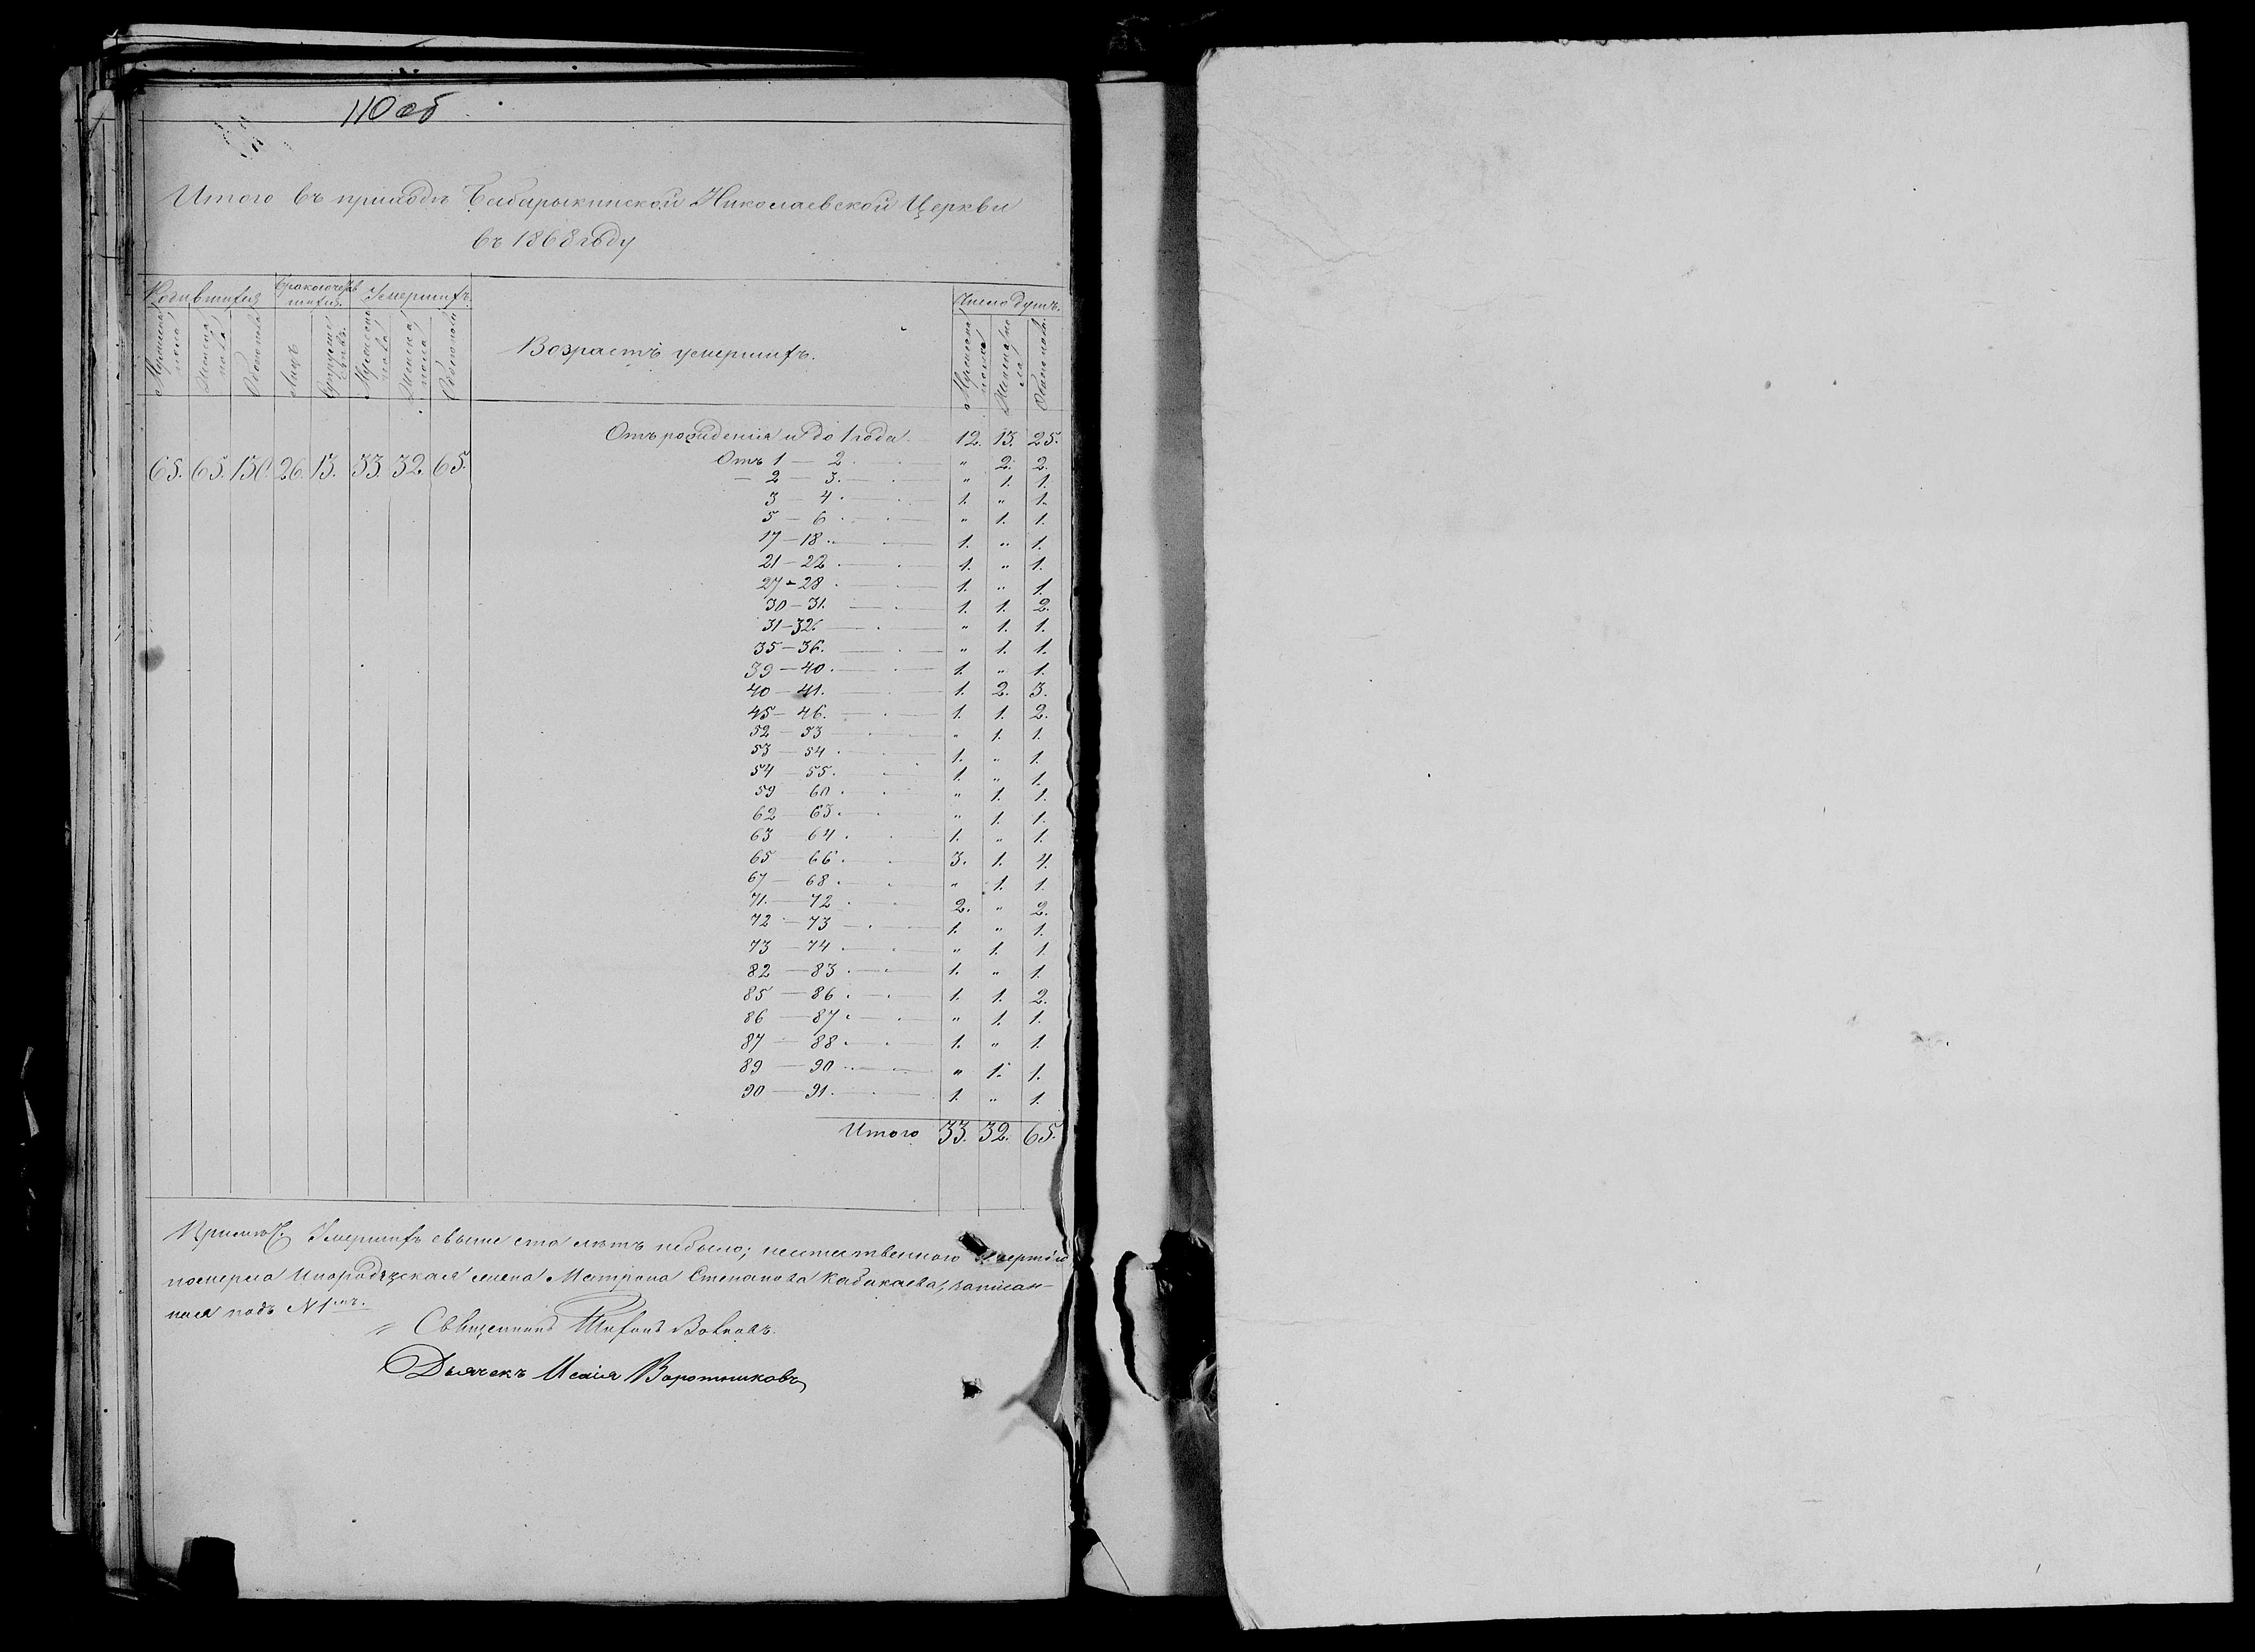 110 об
Итого въ приходѣ Бабарыкинской Николаевской Церкви
въ 1868 году
Родившихся Бракосочетавшихся Умершихъ. Возрастъ умершихъ. Число душъ.
Мужеска пола Женска пола Обоего пола Лицъ Супружествъ. Мужеска пола Женска пола Обоего пола Мужеска пола Женска пола Обоего пола.
65. 65. 130. 26. 13. 33. 32. 65.
Отъ рожденія и до 1 года. 12. 13. 25.
Отъ 1 — 2 " 2. 2.
— 2 — 3. " 1. 1.
3 — 4. 1. " 1.
5 — 6. " 1. 1.
17 — 18. 1. " 1.
21 — 22. 1. " 1.
27 — 28. 1. " 1.
30 — 31. 1. 1. 2.
31 — 32. " 1. 1.
35 — 36. " 1. 1.
39 — 40. 1. " 1.
40 — 41. 1. 2. 3.
45 — 46. 1. 1. 2.
52 — 53 " 1. 1.
53 — 54. 1. " 1.
54 — 55. 1. " 1.
59 — 60. " 1. 1.
62 — 63. " 1. 1.
63 — 64. 1. " 1.
65 — 66. 3. 1. 4.
67 — 68. " 1. 1.
71. — 72. 2. " 2.
72 — 73 1. " 1.
73 — 74. " 1. 1.
82 — 83. 1. " 1.
85 — 86. 1. 1. 2.
86 — 87. " 1. 1.
87 — 88. 1. " 1.
89 — 90. " 1. 1.
90 — 91. 1. " 1.
Итого 33. 32. 65.
Умершихъ свыше ста лѣтъ небыло;
померла Инородческая жена Матрона Степанова Кабакаева, записан-
ная подъ № 1мъ.
Священникъ Тихонъ
Дьячекъ Исаія Воротниковъ